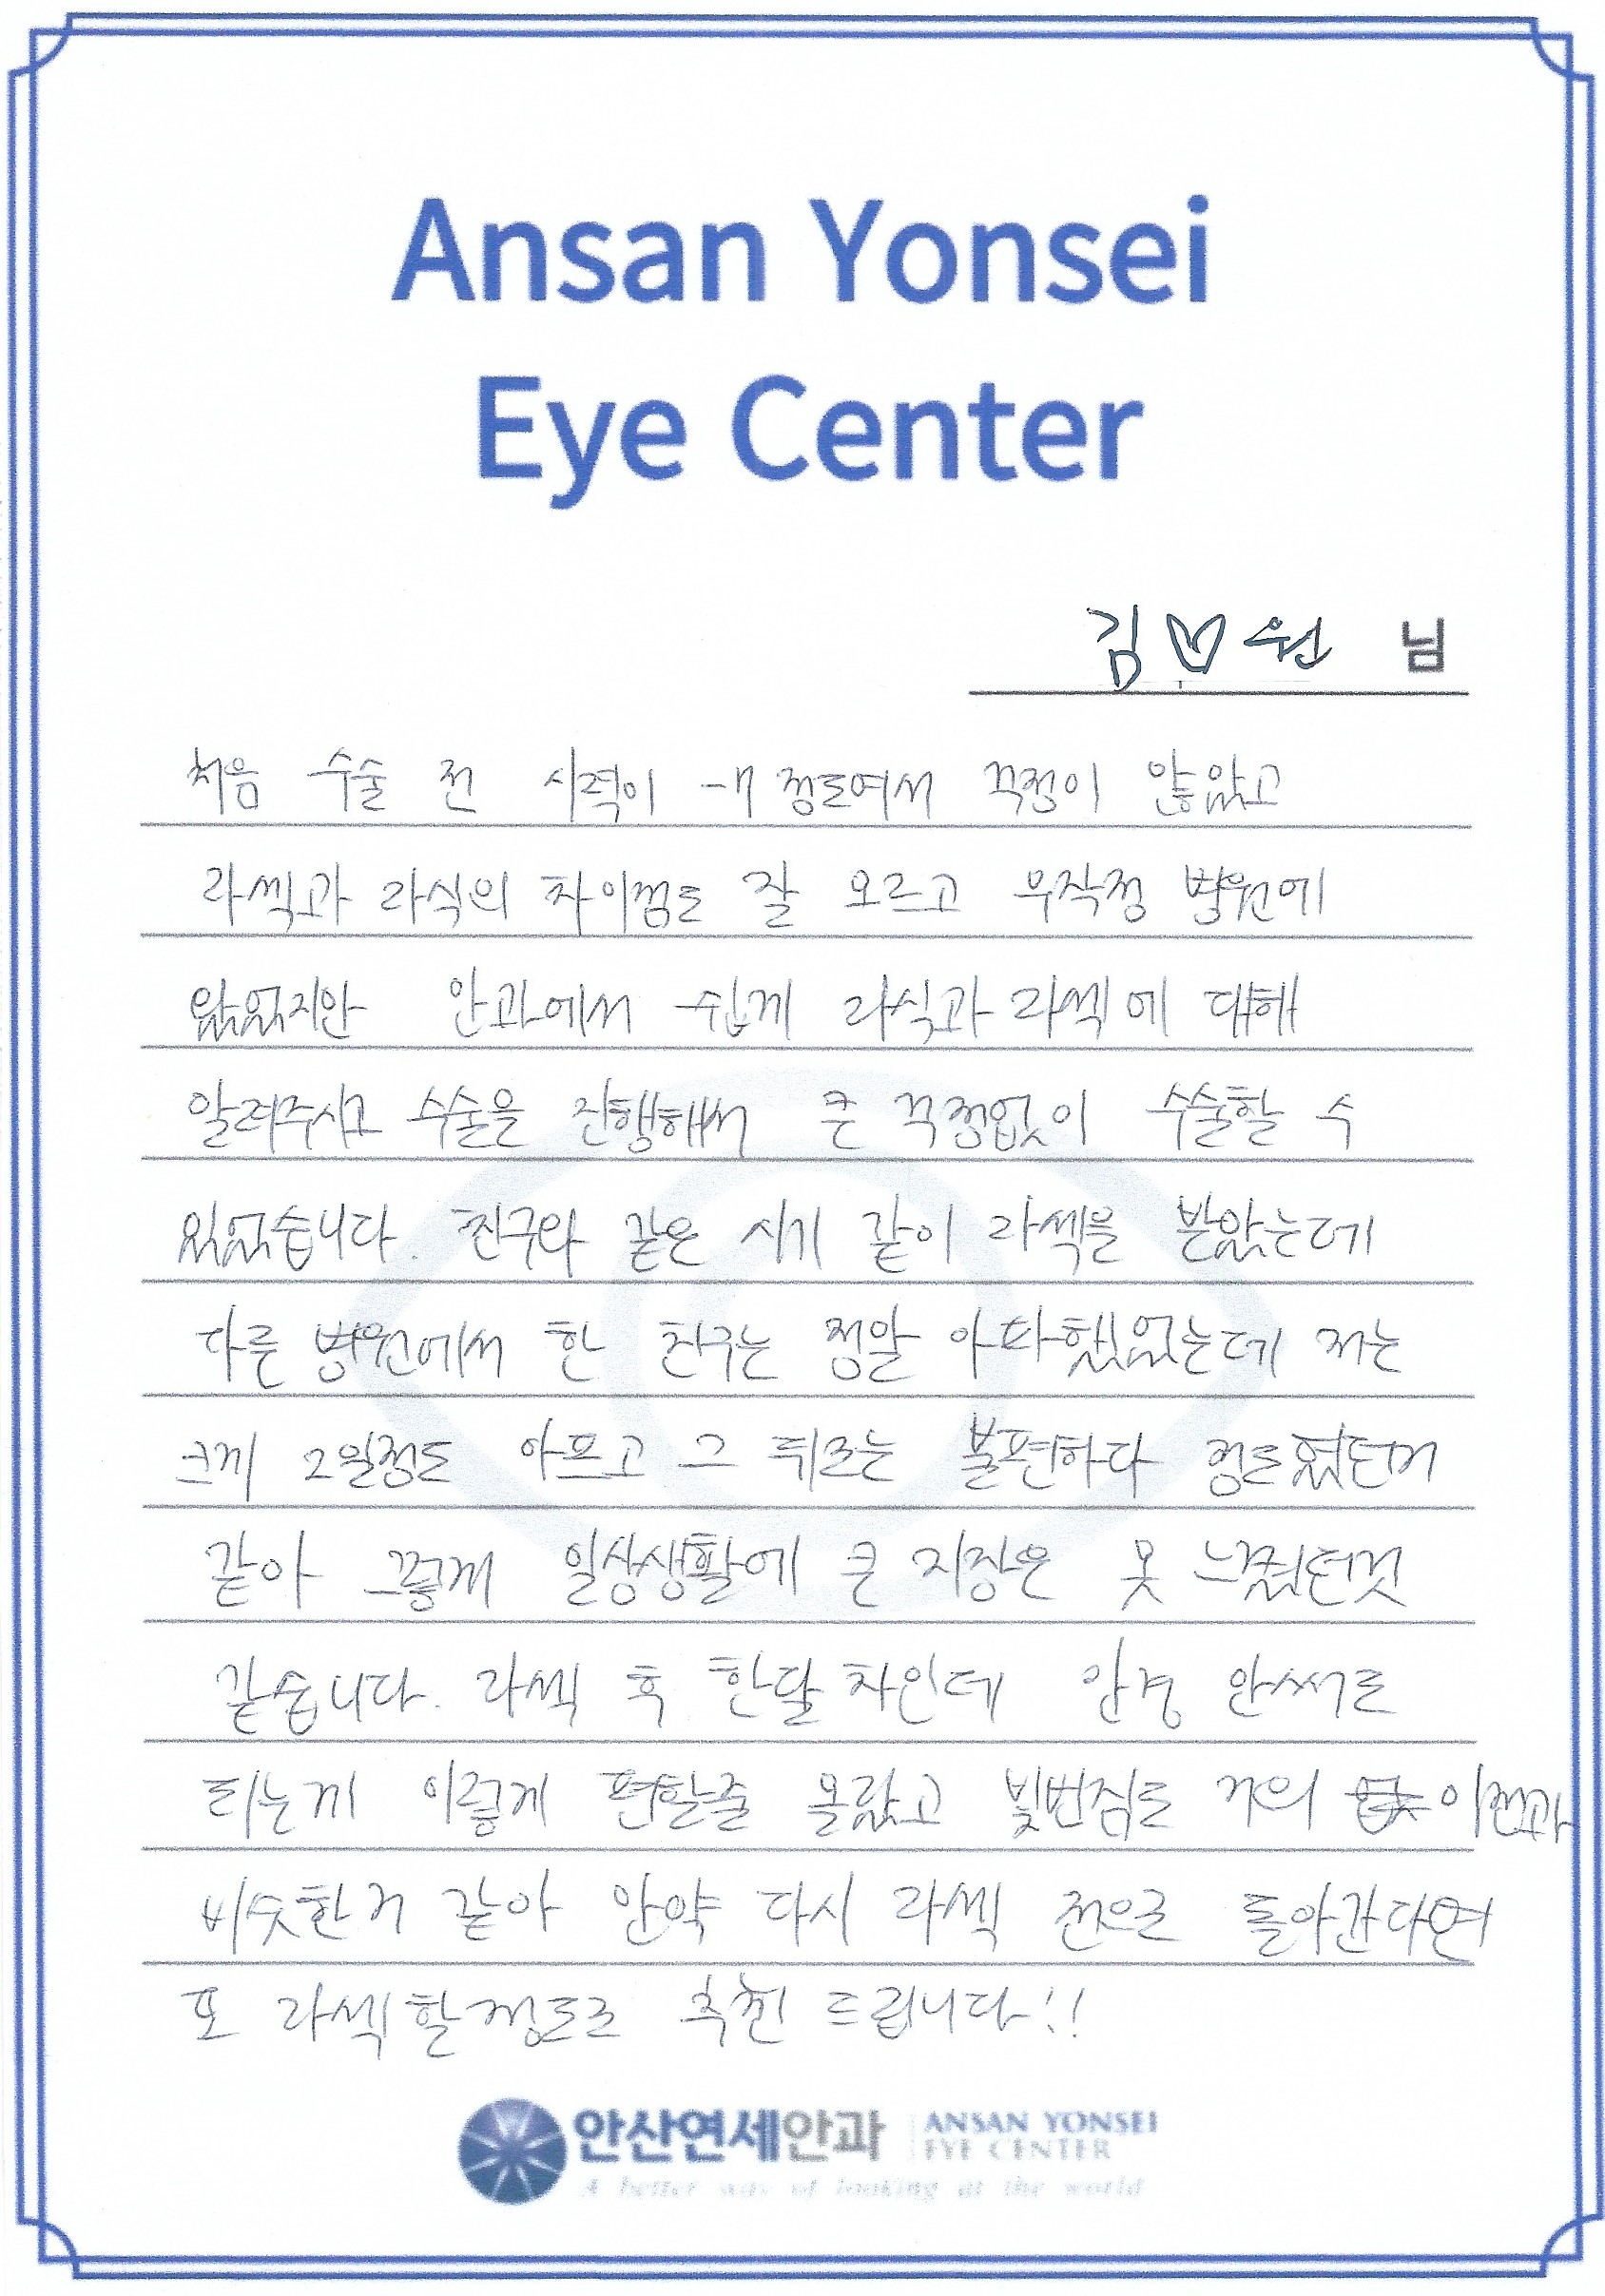 Ansan Yonsei
Eye Center
김♡원 님
처음 수술 전 시력이 -7 정도여서 걱정이 많았고
라섹과 라식의 차이점도 잘 모르고 무작정 병원에
왔었지만 안과에서 쉽게 라식과 라섹에 대해
알려주시고 수술을 진행해서 큰 걱정없이 수술할 수
있었습니다. 친구와 같은 시기 같이 라섹을 받았는데
다른 병원에서 한 친구는 정말 아파했었는데 저는
크게 2일정도 아프고 그 뒤로는 불편하다 정도였던거
같아 그렇게 일상생활에 큰 지장은 못 느꼈던것
같습니다. 라섹 후 한달 차인데 안경 안써도
되는게 이렇게 편할줄 몰랐고 빛번짐도 거의 이전과
비슷한거 같아 만약 다시 라섹 전으로 돌아간다면
또 라섹할정도로 추천 드립니다!!
안산연세안과 ANSAN YONSEI
EYE CENTER
A better way of looking at the world